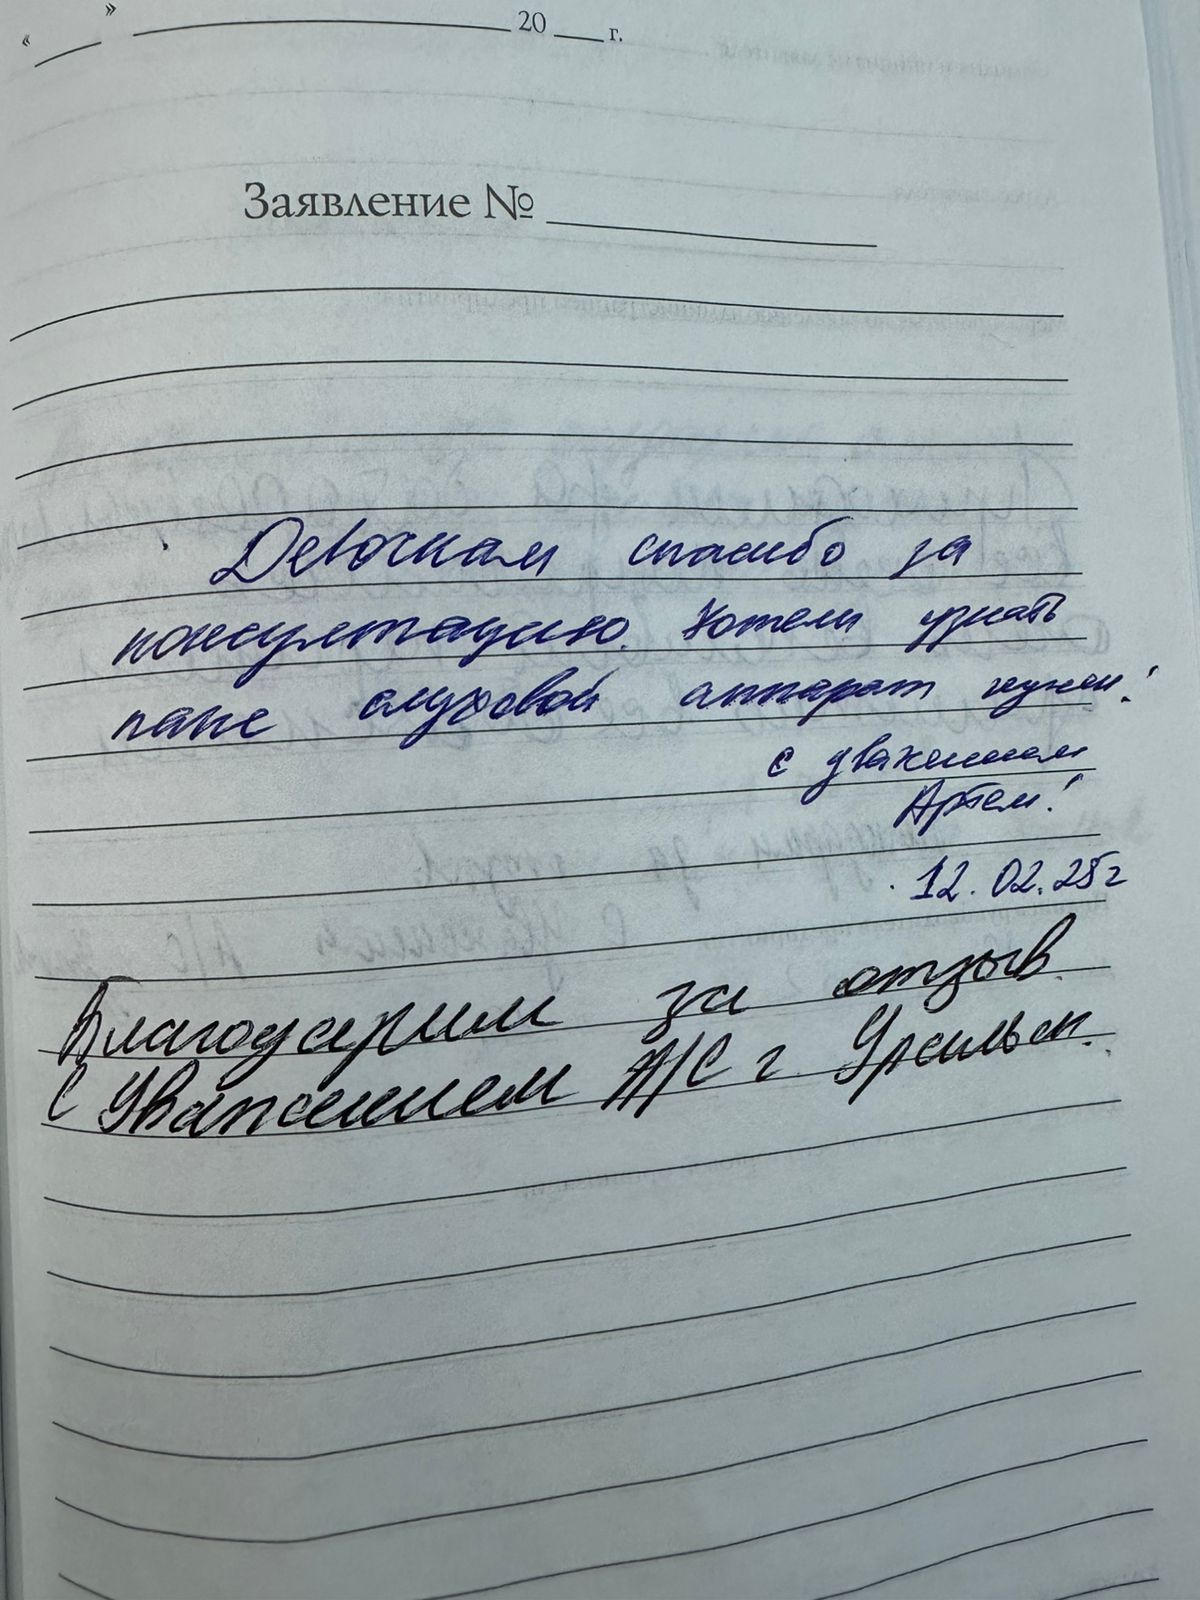 « ___ » ______________ 20 ___ г.
Заявление № ______________
Девочкам спасибо за
консультацию. Хотели узнать
папе слуховой аппарат нужен!
с уважением
Артем!
12.02.25г
Благодарим за отзыв.
С Уважением А/С г. Уральск.